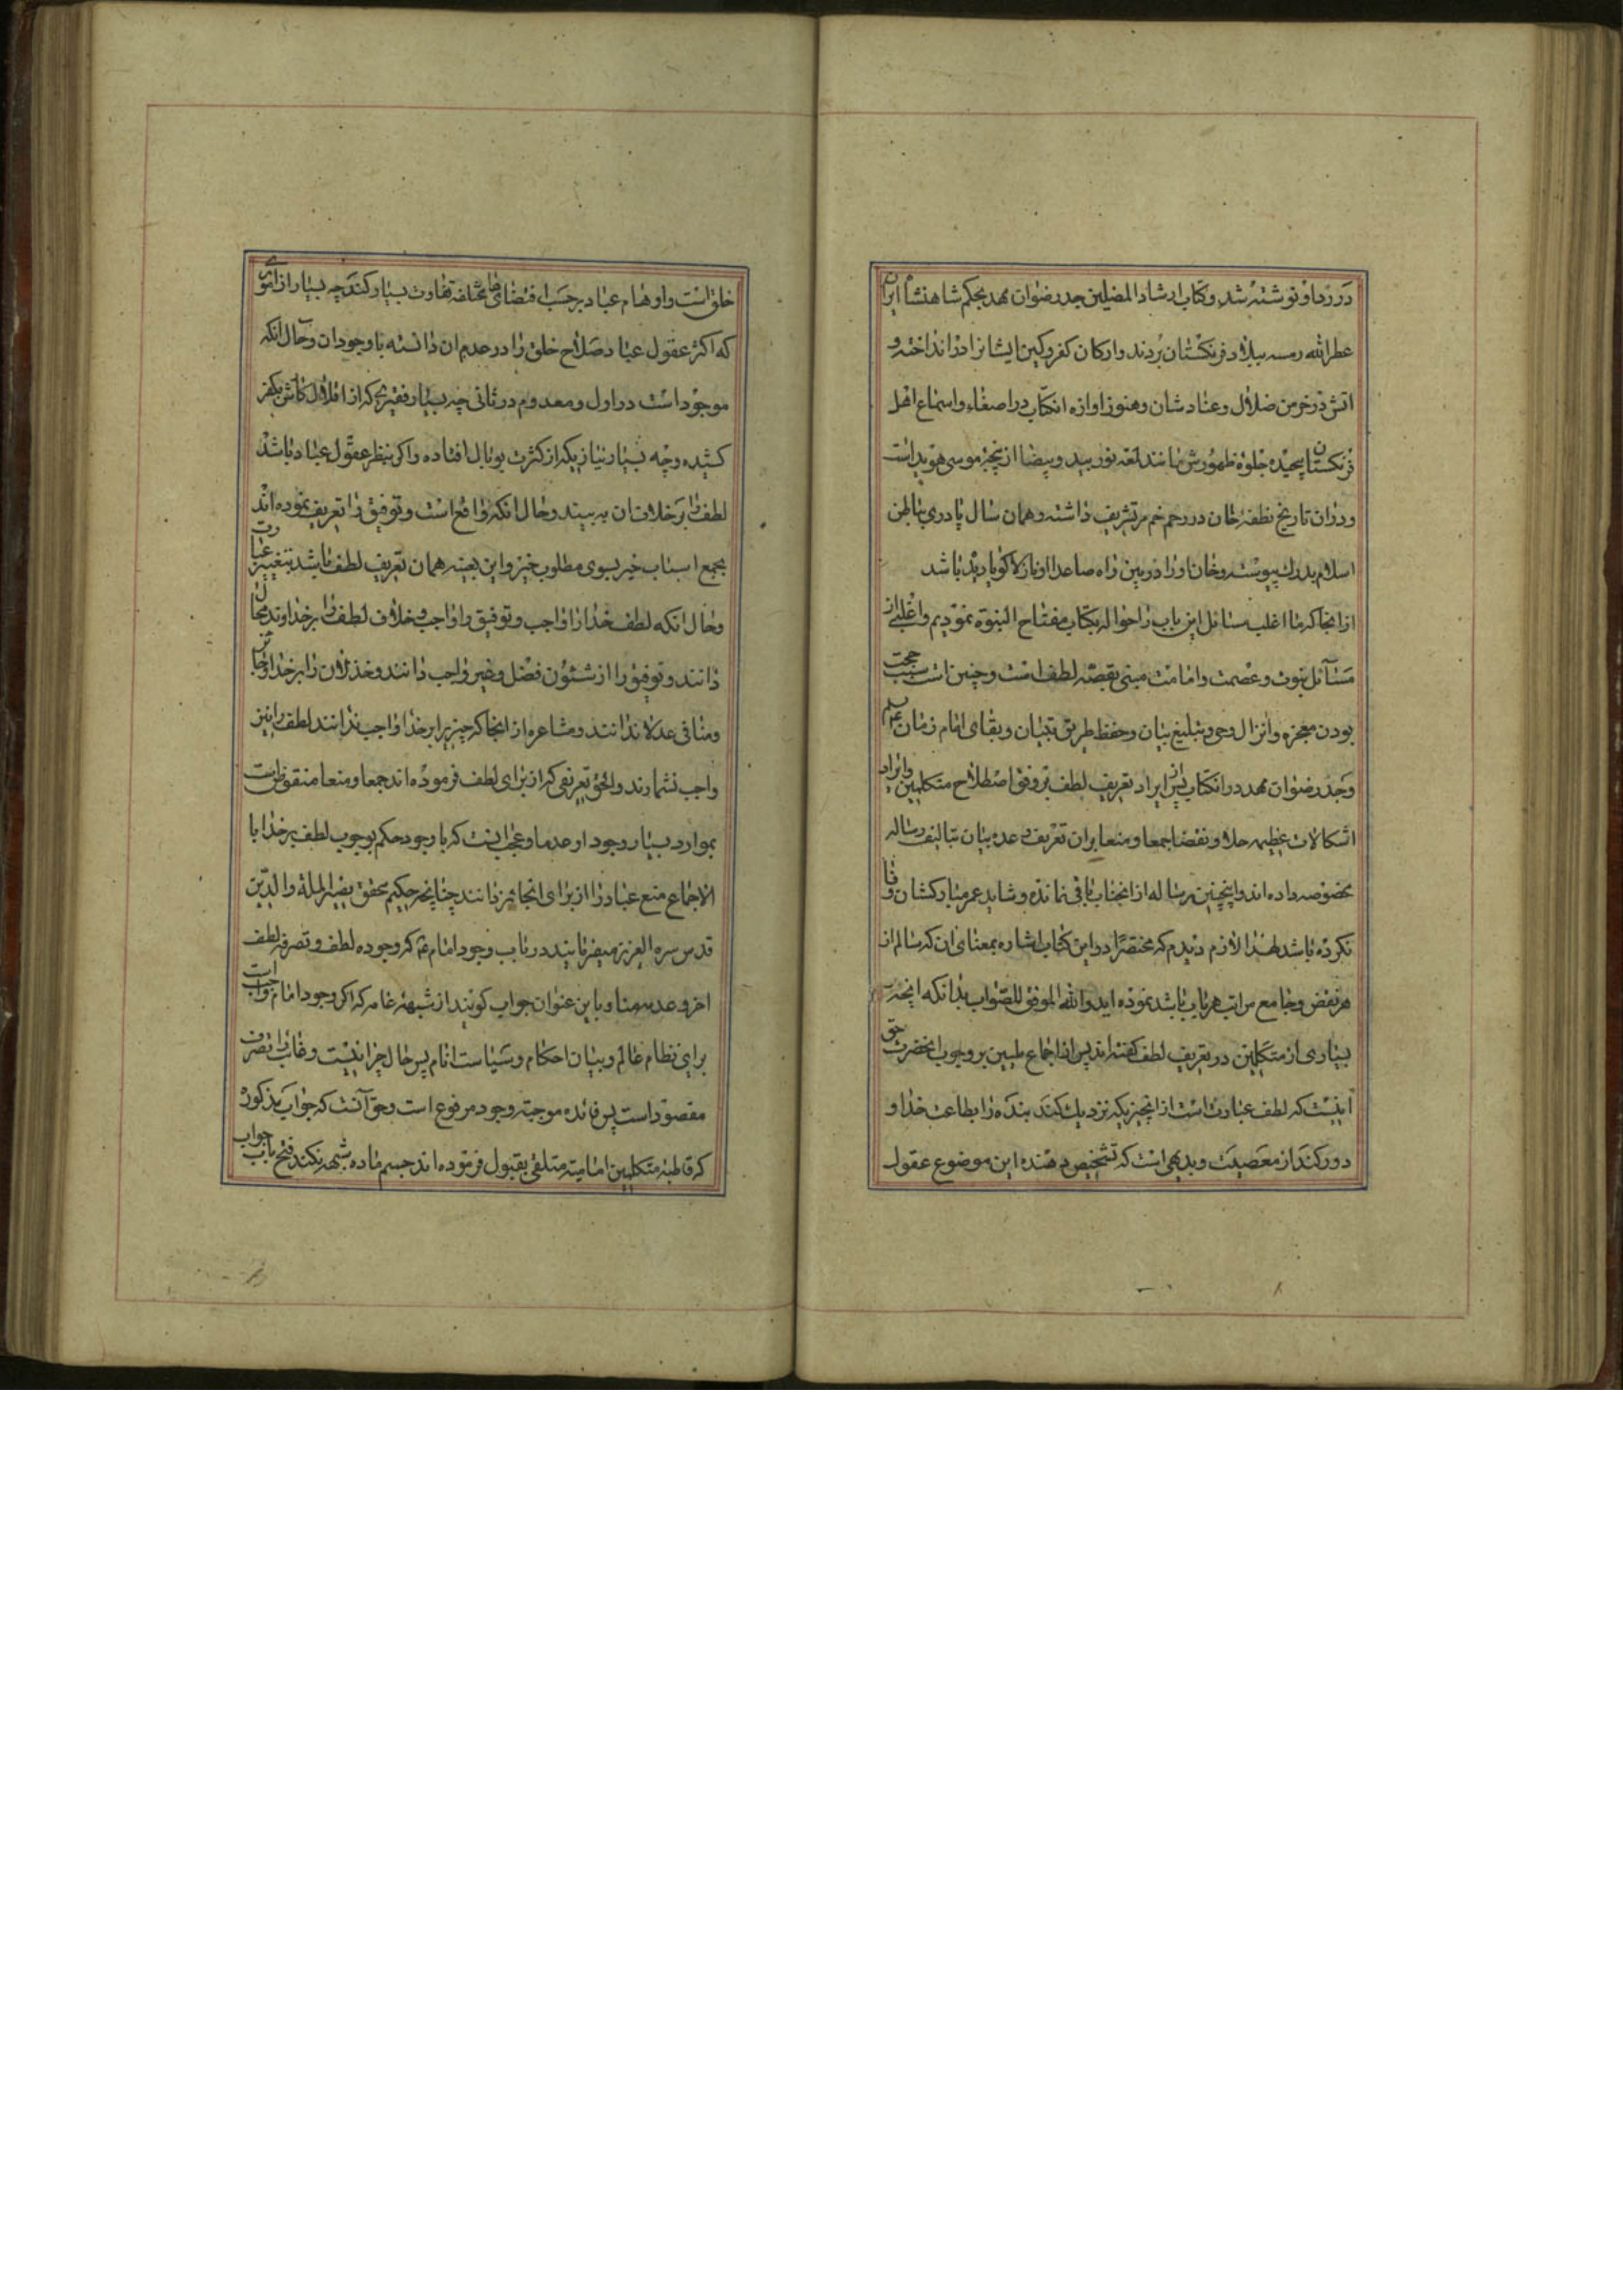 در رد او نوشته شد و کتاب ارشاد المضلین جد رضوان مهد بحکم شاهنشاه ایران
عطر الله رمسه ببلاد فرنکستان بردند و ارکان کفر و کین ایشانرا در انداخته و
اتش در خرمن ضلال و عناد شان و هنوز اوازه انکتاب در اصغاء و اسماع اهل
فرنکستان پیچیده جلوه ظهورش مانند لمعه نور بید و بیضا از پنجه موسی هویداست
و دران تاریخ نطفه خان در رحم خم مر تشریف داشته و همان سال پادری بباطن
اسلام بدرک پیوسته و خان او را در بین راه صاعدا او نازلا کویا دیده باشد
از انجا که ما اغلب مسائل این باب را حواله بکتاب مفتاح النبوة نمودیم و اغلبی از
مسائل نبوت و عصمت و امامت مبنی بقصه لطف است و چنین است سبب حجت
بودن معجزه و انزال وحی و تبلیغ بیان و حفظ طریق تبیان و بقای امام زمان
و جد رضوان مهد در انکتاب پس از ایراد تعریف لطف بر وفق اصطلاح متکلمین و ایراد
اشکالات عظیمه حلا و نقضا جمعا و منعا بران تعریف وعده بیان بتالیف رساله
مخصوصه داده اند و اینچنین رساله از انجناب باقی نمانده و شاید عمر مبارکشان وفا
نکرده باشد لهذا لازم دیدم که مختصرا در این کتاب اشاره بمعنای ان که سالم از
هر نقض و جامع مراتب هر باب باشد نموده اید و الله الموفق للصواب بدانکه انچه
بسیاری از متکلمین در تعریف لطف گفته اند پس از اجماع ملیین بر وجوب انحضرت حق
اینست که لطف عبارت است از انچیزیکه نزدیک کند بنده را بطاعت خدا و
دور کند از معصیت و بدیهی است که تشخیص دهنده این موضوع عقول
خلق است و اوهام عباد بر حسب اقتضای مختلفه تفاوت بسیار کند چه بسیار از امور
که اکثر عقول عباد صلاح خلق را در عدم ان دانسته با وجود ان و حال انکه
موجود است در اول و معدوم در ثانی چه بسیار فقیریکه از افلاس کارش بکفر
کشیده و چه بسیار نیازیکه از کثرت بوبال افتاده و اگر بنظر عقول عباد باشد
لطف را بر خلاف ان به بیند و حال انکه واقع است و توفیق را تعریف نموده اند
بجمع اسباب خیر بسوی مطلوب خیر و این بعینه همان تعریف لطف باشد بتغییر عبارت
و حال انکه لطف خدا را واجب و توفیق را واجب و خلاف لطف را بر خداوند محال
دانند و توفیق را از شئون فضل و غیر واجب دانند و خذلان را بر خدا جایز
و منافی عدل ندانند و مشاعره از انجا که چیزیرا بر خدا واجب ندانند لطف را نیز
واجب نشمارند و الحق تعریفی که از برای لطف فرموده اند جمعا و منعا منقوض است
بموارد بسیار وجود او عدما و عجب اینست که با وجود حکم بوجوب لطف بر خدا با
الاجماع منع عباد را از برای انجا جز دانند چنانچه حکیم محقق نصیر الملة و الدین
قدس سره العزیز میفرمایند در باب وجود امام ع که وجوده لطف و تصرفه لطف
اخر و عدمه منا و باین عنوان جواب کویند از شبهه عامه که اکر وجود امام واجب است
برای نظام عالم و بیان احکام و سیاست انام پس حال چرا نیست و غایب را تصرف
مقصود است پس فائده موجبه وجود مرفوع است و حق آنست که جواب مذکور
که قاطبه متکلمین امامیه متلقی بقبول فرموده اند حسم ماده شبهه نکند فتح باب جواب